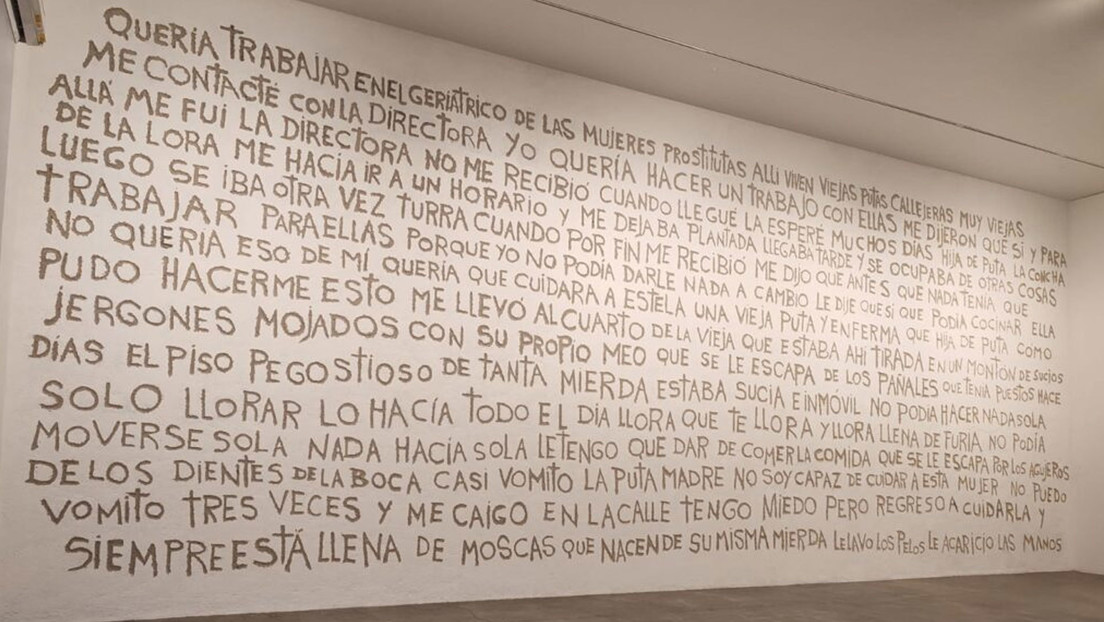 QUERÍA TRABAJAR EN EL GERIÁTRICO DE LAS MUJERES PROSTITUTAS ALLI VIVEN VIEJAS PUTAS CALLEJERAS MUY VIEJAS
ME CONTACTÉ CON LA DIRECTORA YO QUERÍA HACER UN TRABAJO CON ELLAS ME DIJERON QUE SI Y PARA
ALLÁ ME FUI LA DIRECTORA NO ME RECIBIÓ CUANDO LLEGUÉ LA ESPERÉ MUCHOS DÍAS HIJA DE PUTA LA CONCHA
DE LA LORA ME HACÍA IR A UN HORARIO Y ME DEJABA PLANTADA LLEGABA TARDE Y SE OCUPABA DE OTRAS COSAS
LUEGO SE IBA OTRA VEZ TURRA CUANDO POR FIN ME RECIBIÓ ME DIJO QUE ANTES QUE NADA TENIA QUE
TRABAJAR PARA ELLAS PORQUE YO NO PODÍA DARLE NADA A CAMBIO LE DIJE QUE SI QUE PODÍA COCINAR ELLA
NO QUERÍA ESO DE MÍ QUERÍA QUE CUIDARA A ESTELA UNA VIEJA PUTA Y ENFERMA QUE HIJA DE PUTA COMO
PUDO HACERME ESTO ME LLEVÓ AL CUARTO DE LA VIEJA QUE ESTABA AHI TIRADA EN UN MONTON DE SUCIOS
JERGONES MOJADOS CON SU PROPIO MEO QUE SE LE ESCAPA DE LOS PAÑALES QUE TENIA PUESTOS HACE
DÍAS EL PISO PEGOSTIOSO DE TANTA MIERDA ESTABA SUCIA E INMÓVIL NO PODIA HACER NADA SOLA
SOLO LLORAR LO HACÍA TODO EL DÍA LLORA QUE TE LLORA Y LLORA LLENA DE FURIA NO PODÍA
MOVERSE SOLA NADA HACÍA SOLA LE TENGO QUE DAR DE COMER LA COMIDA QUE SE LE ESCAPA POR LOS AGUJEROS
DE LOS DIENTES DE LA BOCA CASI VOMITO LA PUTA MADRE NO SOY CAPAZ DE CUIDAR A ESTA MUJER NO PUEDO
VOMITO TRES VECES Y ME CAIGO EN LA CALLE TENGO MIEDO PERO REGRESO A CUIDARLA Y
SIEMPRE ESTÁ LLENA DE MOSCAS QUE NACEN DE SU MISMA MIERDA LE LAVO LOS PELOS LE ACARICIO LAS MANOS